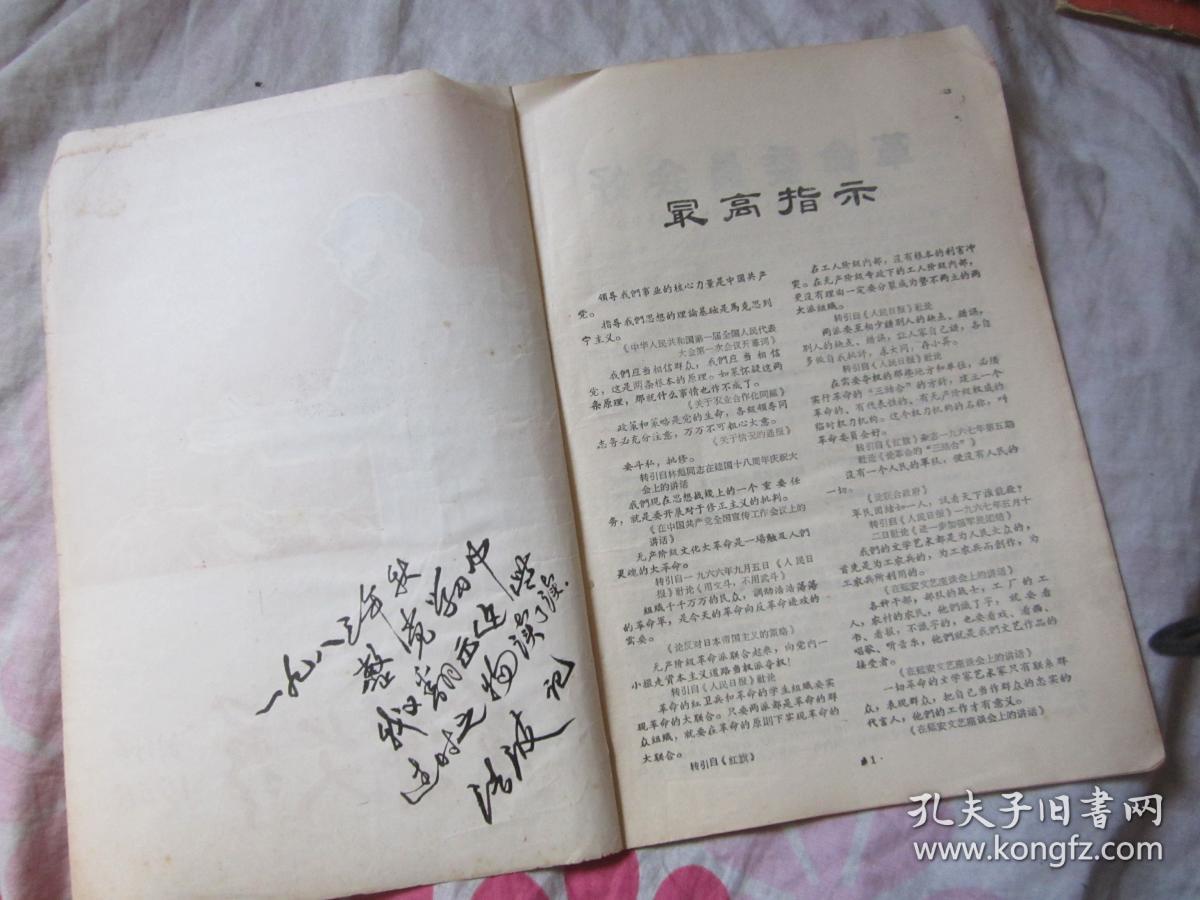 一九八三年秋
整党学习中
我又翻也这些
过时之物读了读
记
最高指示
领导我們事业的核心力量是中国共产
党。
指导我們思想的理論基础是馬克思列
宁主义。
《中华人民共和国第一届全国人民代表
大会第一次会议开幕词》
我們应当相信群众，我們应当相信
党，这是两条根本的原理。如果怀疑这两
条原理，那就什么事情也作不成了。
《关于农业合作化問題》
政策和策略是党的生命，各级领导同
志务必充分注意，万万不可粗心大意。
《关于情况的通报》
要斗私，批修。
转引自林彪同志在建国十八周年庆祝大
会上的讲话
我們现在思想战线上的一个重要任
务，就是要开展对于修正主义的批判。
《在中国共产党全国宣传工作会议上的
讲话》
无产阶级文化大革命是一場触及人们
灵魂的大革命。
转引自一九六六年九月五日《人民日
报》社论《用文斗，不用武斗》
组织千千万万的民众，調动浩浩荡荡
的革命軍，是今天的革命向反革命进攻的
需要。
《论反对日本帝国主义的策略》
无产阶级革命派联合起来，向党内一
小撮走資本主义道路当权派夺权！
转引自《人民日报》社论
革命的红卫兵和革命的学生组織要实
现革命的大联合。只要两派都是革命的群
众组織，就要在革命的原則下实现革命的
大联合。
转引自《红旗》
在工人阶级内部，没有根本的利害冲
突。在无产阶级专政下的工人阶级内部，
更没有理由一定要分裂成为势不两立的两
大派組織。
转引自《人民日报》社论
两派要互相少談別人的缺点、錯誤，
别人的缺点、錯誤，让人家自己談，各自
多做自我批評，求大同，存小异。
转引自《人民日报》社论
在需要夺权的那些地方和单位，必須
实行革命的“三结合”的方針，建立一个
革命的、有代表性的、有无产阶级权威的
临时权力机构。这个权力机构的名称，叫
革命委員会好。
转引自《红旗》杂志一九六七年第五期
社论《论革命的“三结合”》
没有一个人民的軍队，便没有人民的
一切。
《论联合政府》
軍民团结如一人，試看天下誰能敌？
转引自《人民日报》一九六七年五月十
二日社论《进一步加强军民团结》
我們的文学艺术都是为人民大众的，
首先是为工农兵的，为工农兵而创作，为
工农兵所利用的。
《在延安文艺座谈会上的讲话》
各种干部，部队的战士，工厂的工
人，农村的农民，他們識了字，就要看
书、看报，不識字的，也要看戏、看画、
唱歌、听音乐，他們就是我們文艺作品的
接受者。
《在延安文艺座谈会上的讲话》
一切革命的文学家艺术家只有联系群
众，表现群众，把自己当作群众的忠实的
代言人，他們的工作才有意义。
《在延安文艺座谈会上的讲话》
·1·
孔夫子旧书网
www.kongfz.com